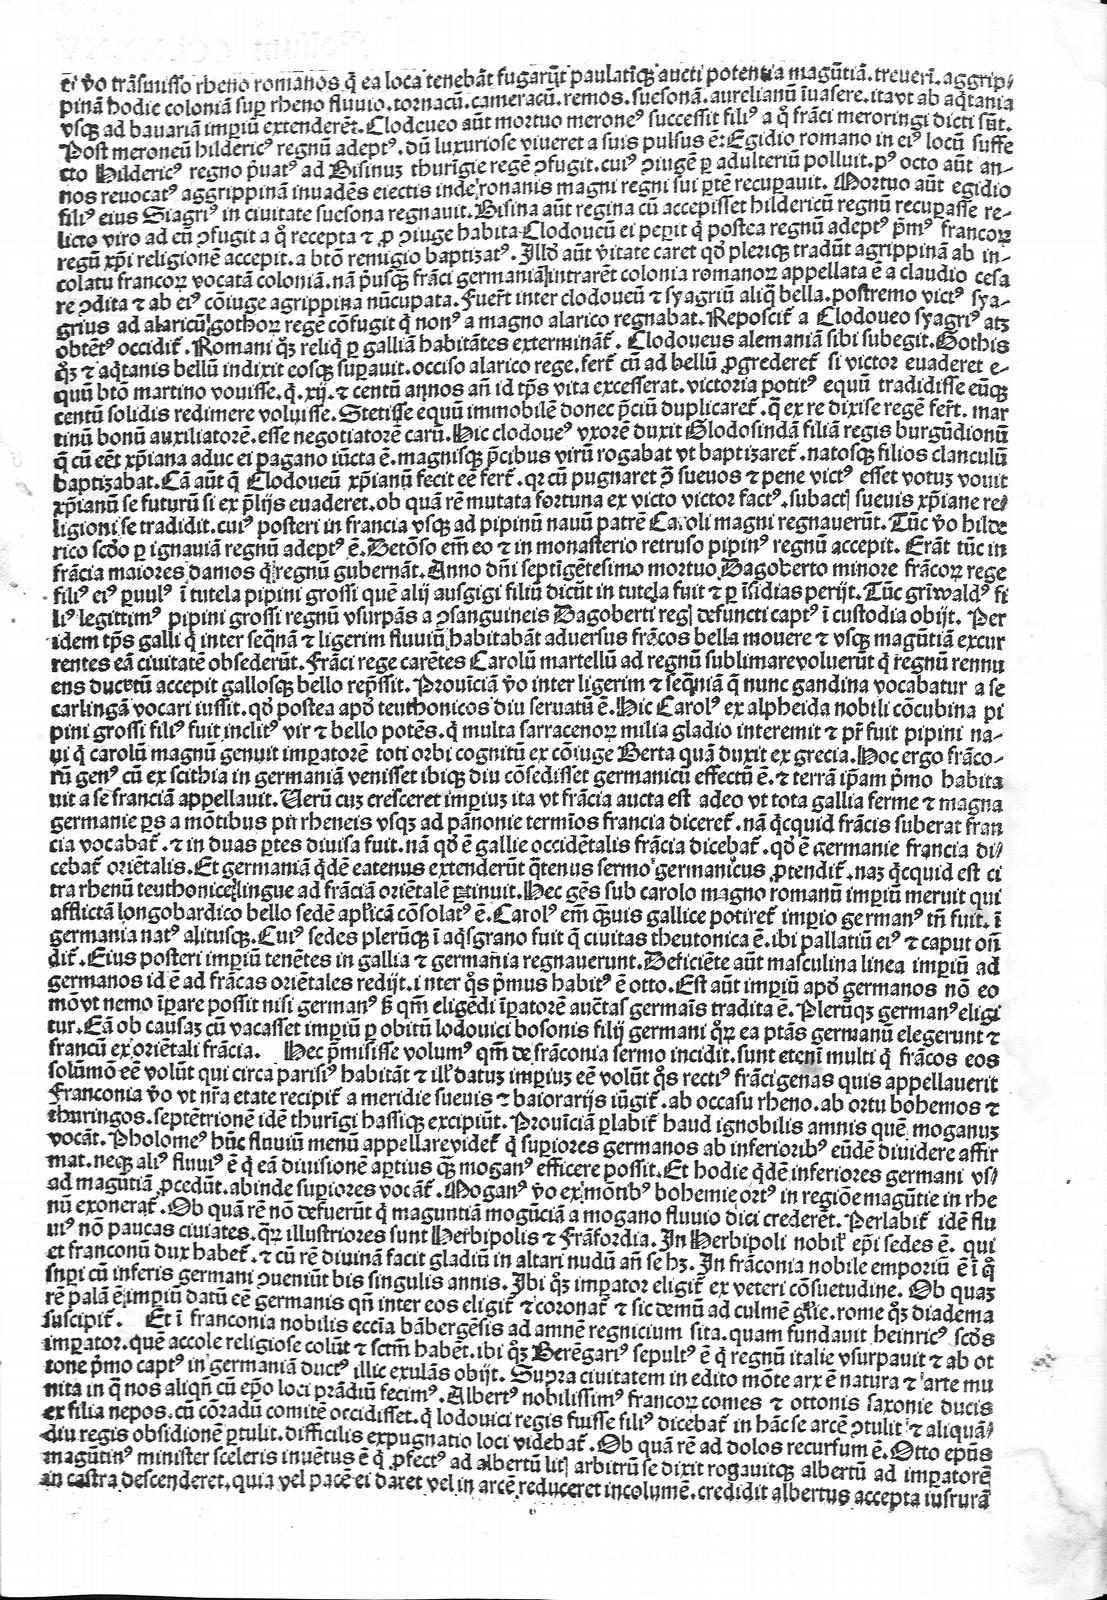 ei v̄o trāsmisso rheno romanos q̄ ea loca tenebāt fugarūt paulatīqꝫ aucti potentia magūtiā.treverī.aggrip⸗
pinā hodie coloniā sup rheno fluvio.tornacū.cameracū.remos.suesonā.aurelianū īuasere.itavt ab aq̄tania
vsqꝫ ad bauariā imꝑiū extenderēt.Clodoveo aūt mortuo meroneꝰ successit filiꝰ a q̄ frāci meroringi dicti sūt.
Post meroneū hildericꝰ regnū adeptꝰ.dū luxuriose viueret a suis pulsus ē:Egidio romano in eiꝰ locū suffe
cto Hildericꝰ regno p̄uatꝰ ad Bisinuz thurīgie regē ꝯfugit.cuiꝰ ꝯiugē ꝑ adulteriū polluit.pꝰ octo aūt an⸗
nos reuocatꝰ aggrippinā inuadēs eiectis inde romanis magni regni sui ꝑtē recuꝑauit. Mortuo aūt egidio
filiꝰ eius Siagriꝰ in ciuitate suesona regnauit.Bisina aūt regina cū accepisset hildericū regnū recuꝑasse re⸗
licto viro ad eū ꝯfugit a q̊ recepta ⁊ ꝓ ꝯiuge habita Clodoueū ei peꝑit q̄ postea regnū adeptꝰ p̄mꝰ francoꝝ
regū xp̄i religionē accepit.a btō remigio baptizatꝰ. Illd̄ aūt vitate caret qd̄ pleriqꝫ tradūt agrippinā ab in⸗
colatu francoꝝ vocatā coloniā.nā p̄usqꝫ frāci germaniā intrarēt colonia romanoꝝ appellata ē a claudio cesa
re ꝯdita ⁊ ab eiꝰ cōiuge agrippina nūcupata.Fuer̄t inter clodoueū ⁊ syagriū aliq̄ bella.postremo victꝰ sya⸗
grius ad alaricū gothoꝝ regē cōfugit q̄ nonꝰ a magno alarico regnabat.Reposcit᷑ a Clodoueo syagriꝰ atꝫ
obtētꝰ occidit᷑.Romani qꝫ reliq̄ ꝑ galliā habitātes exterminat᷑. Clodoueus alemaniā sibi subegit.Gothis
qꝫ ⁊ aq̄tanis bellū indixit eosqꝫ suꝑauit.occiso alarico rege.fert᷑ cū ad bellū ꝓgrederet᷑ si victor euaderet e⸗
quū btō martino vouisse.q̄.xij.⁊ centū annos añ id tp̄s vita excesserat.victoria potitꝰ equū tradidisse eūqꝫ
centū solidis redimere voluisse.Stetisse equū immobilē donec p̄ciū duplicaret᷑.q̄ ex re dixise regē fert᷑.mar
tinū bonū auxiliatorē.esse negotiatorē carū.Hic clodoueꝰ vxorē duxit Glodosindā filiā regis burgūdionū
q̄ cū eēt xp̄iana aduc ei pagano iūcta ē.magnisqꝫ p̄cibus virū rogabat vt baptizaret᷑.natosqꝫ filios clanculū
baptizabat.Cā aūt q̄ Clodoueū xp̄ianū fecit eē fert᷑.qꝛ cū pugnaret ꝯ̄ sueuos ⁊ pene victꝰ esset votuz vouit
xp̄ianū se futurū si ex p̄lijs euaderet.ob quā rē mutata fortuna ex victo victor factꝰ.subact̄ sueuis xp̄iane re⸗
ligioni se tradidit.cuiꝰ posteri in francia vsqꝫ ad pipinū nauū patrē Caroli magni regnauerūt.Tūc v̄o hilde
rico scd̄o ꝑ ignauiā regnū adeptꝰ ē.Detōso em̄ eo ⁊ in monasterio retruso pipinꝰ regnū accepit. Erāt tūc in
frācia maiores damos q̄ regnū gubernāt.Anno dn̄i septīgētesimo mortuo Dagoberto minore frācoꝝ rege
filiꝰ eiꝰ ꝑuulꝰ ī tutela pipini grossi quē alij ausgigi filiū dicūt in tutela fuit ⁊ ꝑ īsidias perijt.Tūc griwaldꝰ fi
liꝰ legittimꝰ pipini grossi regnū vsurpās a ꝯsanguineis Dagoberti reḡ defuncti captꝰ ī custodia obijt. Per
idem tp̄s galli q̄ inter seq̄nā ⁊ ligerim fluuiū habitabāt aduersus frācos bella mouere ⁊ vsqꝫ magūtiā excur
rentes eā ciuitatē obsederūt.Frāci rege carētes Carolū martellū ad regnū sublimarevoluerūt q̄ regnū rennu
ens ducatū accepit gallosqꝫ bello rep̄ssit. Prouīciā v̄o inter ligerim ⁊ seq̄niā q̄ nunc gandina vocabatur a se
carlingā vocari iussit.qd̄ postea apd̄ teuthonicos diu seruatū ē.Hic Carolꝰ ex alpheida nobili cōcubina pi
pini grossi filiꝰ fuit inclitꝰ vir ⁊ bello potēs.q̄ multa sarracenoꝝ milia gladio interemit ⁊ pr̄ fuit pipini na⸗
ui q̄ carolū magnū genuit imꝑatorē toti orbi cognitū ex cōiuge Berta quā duxit ex grecia.Hoc ergo frāco⸗
rū genꝰ cū ex scithia in germaniā venisset ibiqꝫ diu cōsedisset germanicū effectū ē.⁊ terrā ip̄am p̄mo habita
uit a se franciā appellauit.Verū cuz cresceret imꝑiuz ita vt frācia aucta est adeo vt tota gallia ferme ⁊ magna
germanie ꝑs a mōtibus pirrheneis vsqꝫ ad pānonie termīos francia diceret᷑.nā q̄cquid frācis suberat fran
cia vocabat᷑.⁊ in duas ꝑtes diuisa fuit.nā qd̄ ē gallie occidētalis frācia dicebat᷑.qd̄ ē germanie francia di⸗
cebat᷑ oriētalis.Et germaniā q̄dē eatenus extenderūt q̄tenus sermo germanicus ꝓtendit᷑.naz q̄cquid est ci
tra rhenū teuthonice lingue ad frāciā oriētalē ꝑtinuit.Hec gēs sub carolo magno romanū imꝑiū meruit qui
afflictā longobardico bello sedē apl̄icā cōsolatꝰ ē.Carolꝰ em̄ q̄uis gallice potiret᷑ imꝑio germanꝰ tn̄ fuit.ī
germania natꝰ alitusqꝫ.Cuiꝰ sedes plerūqꝫ ī aq̄sgrano fuit q̄ ciuitas theutonica ē.ibi pallatiū eiꝰ ⁊ caput osn̄
dit᷑.Eius posteri imꝑiū tenētes in gallia ⁊ germania regnauerunt.Deficiēte aūt masculina linea imꝑiū ad
germanos id ē ad frācas oriētales redijt.inter q̊s p̄mus habitꝰ ē otto.Est aūt imꝑiū apd̄ germanos nō eo
mō vt nemo īꝑare possit nisi germanꝰ sꝫ qm̄ eligēdi īꝑatorē auctas germaīs tradita ē. Plerūqꝫ germanꝰ eligi
tur.Eā ob causaz cū vacasset imꝑiū ꝑ obitū lodouici bosonis filij germani qꝛ ea ptās germanū elegerunt ⁊
francū ex oriētali frācia. Hec p̄misisse volumꝰ qm̄ de frāconia sermo incidit.sunt etenī multi q̄ frācos eos
solūmō eē volūt qui circa parisiꝰ habitāt ⁊ ill̄ datuz imꝑiuz eē volūt q̊s rectiꝰ frācigenas quis appellauerit
Franconia v̄o vt nr̄a etate recipit᷑ a meridie sueuis ⁊ baiorarijs iūgit᷑.ab occasu rheno.ab ortu bohemos ⁊
thuringos.septētrionē idē thurīgi hassiqꝫ excipiūt. Prouīciā ꝑlabit᷑ haud ignobilis amnis quē moganuz
vocāt.Pholomeꝰ hūc fluuiū menū appellarevidet᷑ q̄ suꝑiores germanos ab inferioribꝰ eūdē diuidere affir
mat.neqꝫ aliꝰ fluuiꝰ ē q̄ eā diuisionē aꝑtius q̄ꝫ moganꝰ efficere possit.Et hodie q̄dē inferiores germani vs⸗
ad magūtiā ꝓcedūt.abinde suꝑiores vocāt᷑.Moganꝰ v̄o ex mōtibꝰ bohemie ortꝰ in regiōe magūtie in rhe
nū exonerat᷑.Ob quā rē nō defuerūt q̄ maguntiā mogūciā a mogano fluuio dici crederēt.Perlabit᷑ idē flu
uiꝰ nō paucas ciuiates.qꝝ illustriores sunt Herbipolis ⁊ Frāfordia. In Herbipoli nobil᷑ ep̄i sedes ē. qui
et franconū dux habet᷑.⁊ cū rē diuinā facit gladiū in altari nudū añ se hꝫ.In frāconia nobile emporiū ē ī q̊
suꝑi cū inferis germani ꝯueniūt bis singulis annis.Ibi qꝫ imꝑator eligit᷑ ex veteri cōsuetudine. Ob quaz
rē palā ē imꝑiū datū eē germanis qn̄ inter eos eligit᷑ ⁊ coronat᷑ ⁊ sic demū ad culmē gl̄ie.rome qꝫ diadema
suscipit᷑. Et ī franconia nobilis eccīa bābergēsis ad amnē regnicium sita.quam fundauit heinricꝰ scd̄s
imꝑator.quē accole religiose colūt ⁊ sctm̄ habēt.ibi qꝫ Berēgariꝰ sepultꝰ ē q̄ regnū italie vsurpauit ⁊ ab ot
tone p̄mo captꝰ in germaniā ductꝰ illic exulās obijt. Supra ciuitatem in edito mōte arx ē natura ⁊ arte mu
nita in q̄ nos aliqn̄ cū ep̄o loci prādiū fecimꝰ.Albertꝰ nobilissimꝰ francoꝝ comes ⁊ ottonis saxonie ducis
ex filia nepos.cū cōradū comitē occidisset.q̄ lodouici regis fuisse filiꝰ dicebat᷑ in hāc se arcē ꝯtulit ⁊ aliquā⸗
diu regis obsidionē ꝑtulit.difficilis expugnatio loci videbat᷑.Ob quā rē ad dolos recursum ē.Otto ep̄us
magūtinꝰ minister sceleris inuētus ē q̄ ꝓfectꝰ ad albertū lit̄ arbitrū se dixit rogauitqꝫ albertū ad imꝑatorē
in castra descenderet.quia vel pacē ei daret vel in arcē reduceret incolumē.credidit albertus accepta iusiurā